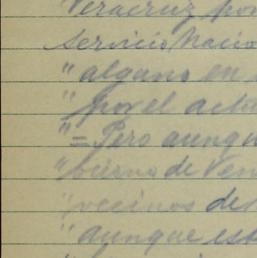 Veracruz por
Servicio Nacio
"alguno en
"por el actu
"= Pero aunqu
"bierno de Ven
"vecinos de
"aunque est